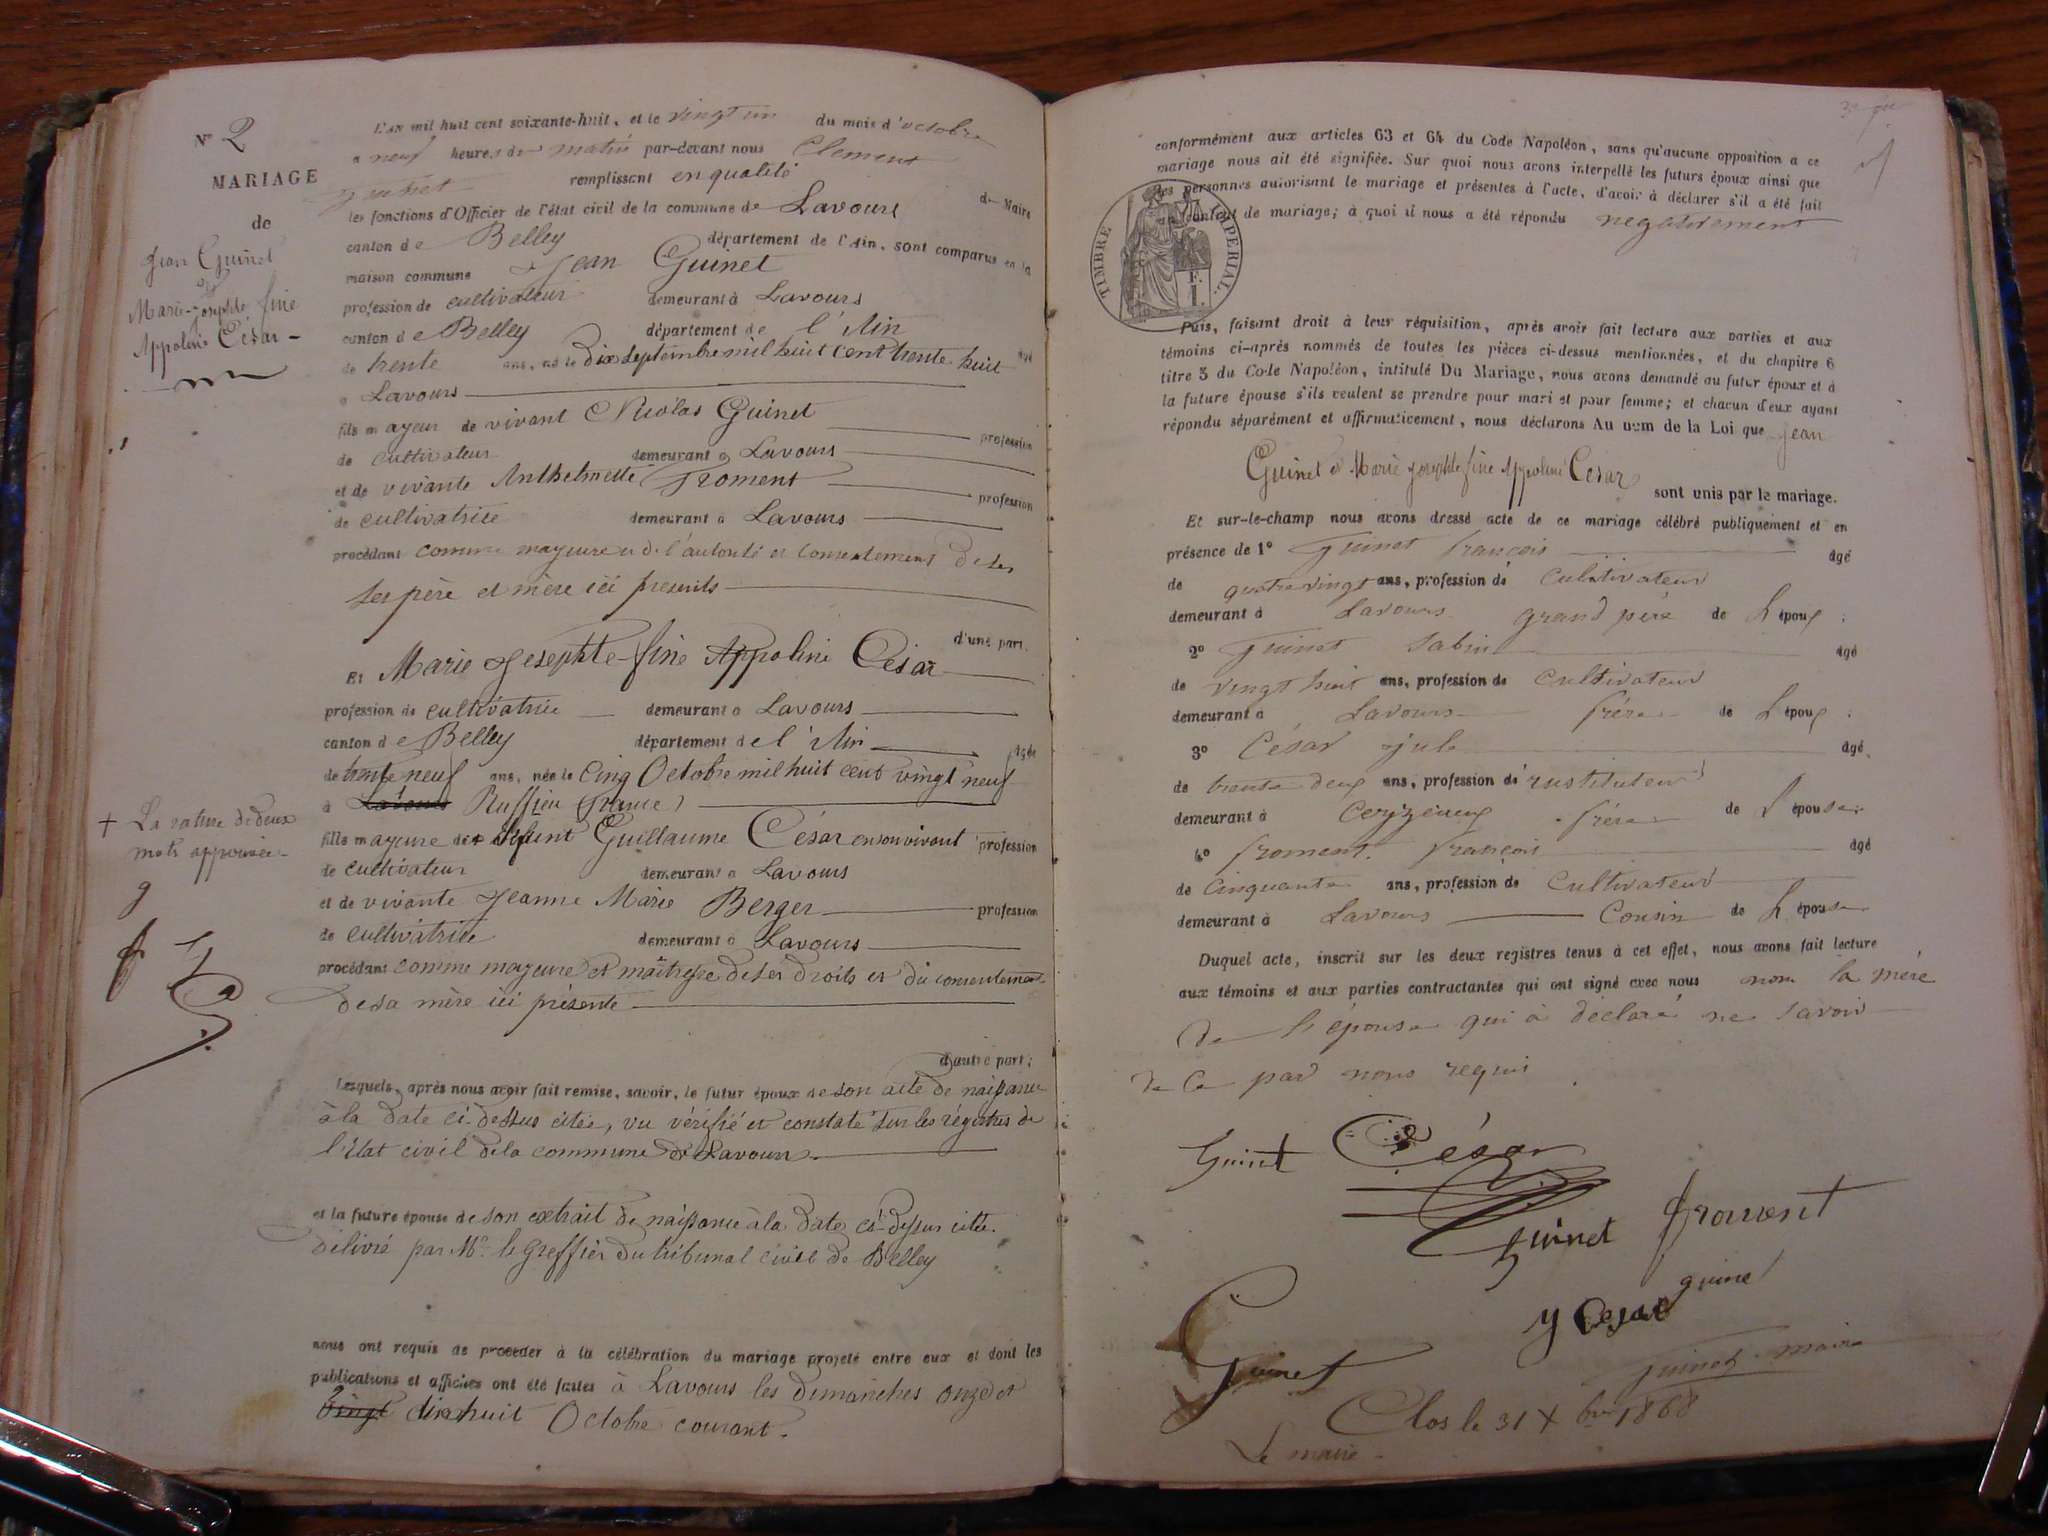 N° 2
MARIAGE
de
Jean Guinet
et
Marie-Josephte fine
Appoline César
+ La rature de deux
mots approuvée
L'an mil huit cent soixante-huit, et le vingt un du mois d'octobre
a neuf heures du matin par-devant nous Clement
Guinet remplissant en qualité de Maire
les fonctions d'Officier de l'état civil de la commune de Lavours
canton de Belley département de l'Ain, sont comparus en la
maison commune Jean Guinet
profession de cultivateur demeurant à Lavours
canton de Belley département de l'Ain
de trente ans, né le dix septembre mil huit cent trente huit
a Lavours
fils majeur de vivant Nicolas Guinet profession
de cultivateur demeurant a Lavours
et de vivante Anthelmette Froment profession
de cultivatrice demeurant a Lavours
procédant comme majeure et de l'autorité et consentement de ses
ses père et mère ici presents
d'une part.
Et Marie Josephte-fine Appoline César
profession de cultivatrice demeurant a Lavours
canton de Belley département de l'Ain agée
de trente neuf ans, née le cinq Octobre mil huit cent vingt neuf
à Lavours Ruffieu (France)
fille majeure de + défunt Guillaume César en son vivant profession
de cultivateur demeurant a Lavours
et de vivante Jeanne Marie Berger profession
de cultivatrice demeurant a Lavours
procédant comme majeure et maîtresse de ses droits et du consentement
de sa mère ici présente
d'autre part;
Lesquels, après nous avoir fait remise, savoir, le futur époux de son acte de naissance
à la date ci-dessus citée, vu vérifié et constaté sur les régistres de
l'Etat civil de la commune de Lavours
et la future épouse de son extrait de naissance à la date ci-dessus citée.
délivré par Mr le Greffier du tribunal civil de Belley
nous ont requis de procéder à la célébration du mariage projeté entre eux et dont les
publications et affiches ont été faites à Lavours les dimanches onze et
vingt dix huit Octobre courant.
conformément aux articles 63 et 64 du Code Napoléon, sans qu'aucune opposition a ce
mariage nous ait été signifiée. Sur quoi nous avons interpellé les futurs époux ainsi que
les personnes autorisant le mariage et présentes à l'acte, d'avoir à déclarer s'il a été fait
un contrat de mariage; à quoi il nous a été répondu negativement
TIMBRE IMPERIAL
Puis, faisant droit à leur réquisition, après avoir fait lecture aux parties et aux
témoins ci-après nommés de toutes les pièces ci-dessus mentionnées, et du chapitre 6
titre 5 du Code Napoléon, intitulé Du Mariage, nous avons demandé au futur époux et à
la future épouse s'ils veulent se prendre pour mari et pour femme; et chacun d'eux ayant
répondu séparément et affirmativement, nous déclarons Au nom de la Loi que Jean
Guinet et Marie Josephte fine Appoline César
sont unis par le mariage.
Et sur-le-champ nous avons dressé acte de ce mariage célébré publiquement et en
présence de 1° Guinet françois âgé
de quatre vingt ans, profession de Cultivateur
demeurant à Lavours grand père de L'époux
2° Guinet Sabin âgé
de vingt huit ans, profession de Cultivateur
demeurant a Lavours frère de L'époux
3° César Jule âgé
de trente deux ans, profession de instituteur
demeurant à Ceyzérieux frère de L'épouse
4° froment françois âgé
de Cinquante ans, profession de Cultivateur
demeurant à Lavours Cousin de L'épouse
Duquel acte, inscrit sur les deux registres tenus à cet effet, nous avons fait lecture
aux témoins et aux parties contractantes qui ont signé avec nous non la mère
de l'épouse qui à déclaré ne savoir
de Ce par nous requis
Guinet César
Guinet froment
guinet
Guinet
J César
Guinet maire
Clos le 31 Xbre 1868
Le maire